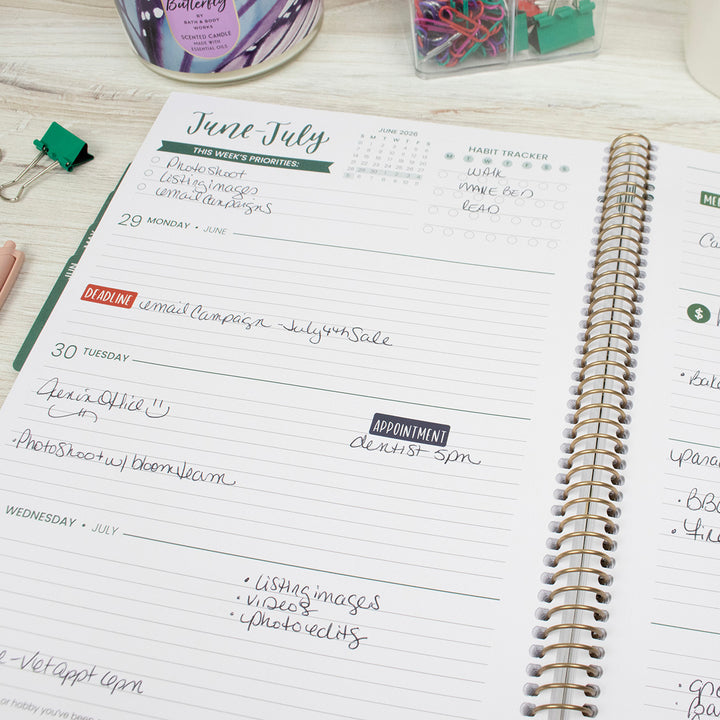 Butterfly
BY
BATH & BODY
WORKS
SCENTED CANDLE
MADE WITH
ESSENTIAL OILS
June-July
THIS WEEK'S PRIORITIES:
Photoshoot
listing images
email campaigns
JUNE 2026
S M T W T F S
HABIT TRACKER
M T W T F S S
WALK
MAKE BED
READ
29 MONDAY • JUNE
DEADLINE
email Campaign - July 4th Sale
30 TUESDAY
in Office
APPOINTMENT
dentist 5pm
• Photoshoot w/ bloom team
WEDNESDAY • JULY
• listing images
• videos
• photo edits
- Vet appt 6pm
or hobby you've been
JUN
MAY
$